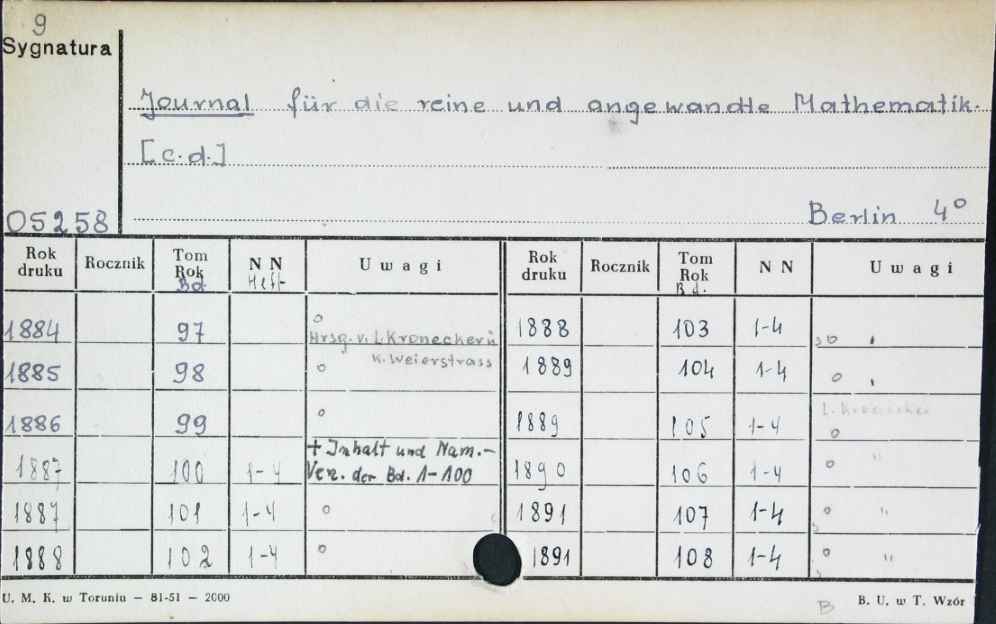 9
Sygnatura
Journal für die reine und angewandte Mathematik.
[c.d.]
05258
Berlin 4°
Rok druku Rocznik Tom Rok Bd. N N Heft Uwagi Rok druku Rocznik Tom Rok Bd. N N Uwagi
1884 97 o Hrsg. v. L. Kronecker u. 1888 103 1-4 o
1885 98 K. Weierstrass o 1889 104 1-4 o
1886 99 o 1889 105 1-4 L. Kronecker o
1887 100 1-4 + Inhalt und Nam.-Verz. der Bd. 1-100 1890 106 1-4 o "
1887 101 1-4 o 1891 107 1-4 o "
1888 102 1-4 o 1891 108 1-4 o "
U. M. K. w Toruniu — 81-51 — 2000
B
B. U. w T. Wzór